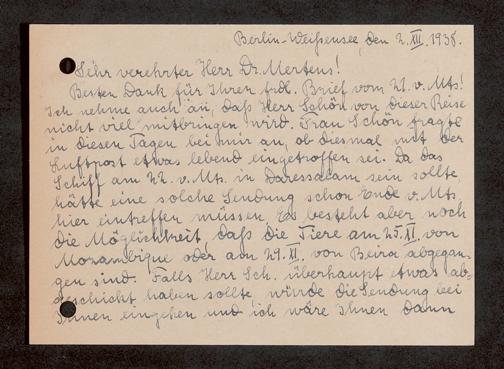 Berlin-Weißensee, den 2. XII. 1938.
Sehr verehrter Herr Dr. Mertens!
Besten Dank für Ihren frdl. Brief vom 21. v. Mts!
Ich nehme auch an, daß Herr Schön von dieser Reise
nicht viel mitbringen wird. Frau Schön fragte
in diesen Tagen bei mir an, ob diesmal mit der
Luftpost etwas lebend eingetroffen sei. Da das
Schiff am 22. v. Mts. in Daressalam sein sollte,
hätte eine solche Sendung schon Ende v. Mts.
hier eintreffen müssen. Es besteht aber noch
die Möglichkeit, daß die Tiere am 25. XI. von
Mozambique oder am 29. XI. von Beira abgegan-
gen sind. Falls Herr Sch. überhaupt etwas ab-
geschickt haben sollte, würde die Sendung bei
Ihnen eingehen und ich wäre Ihnen dann